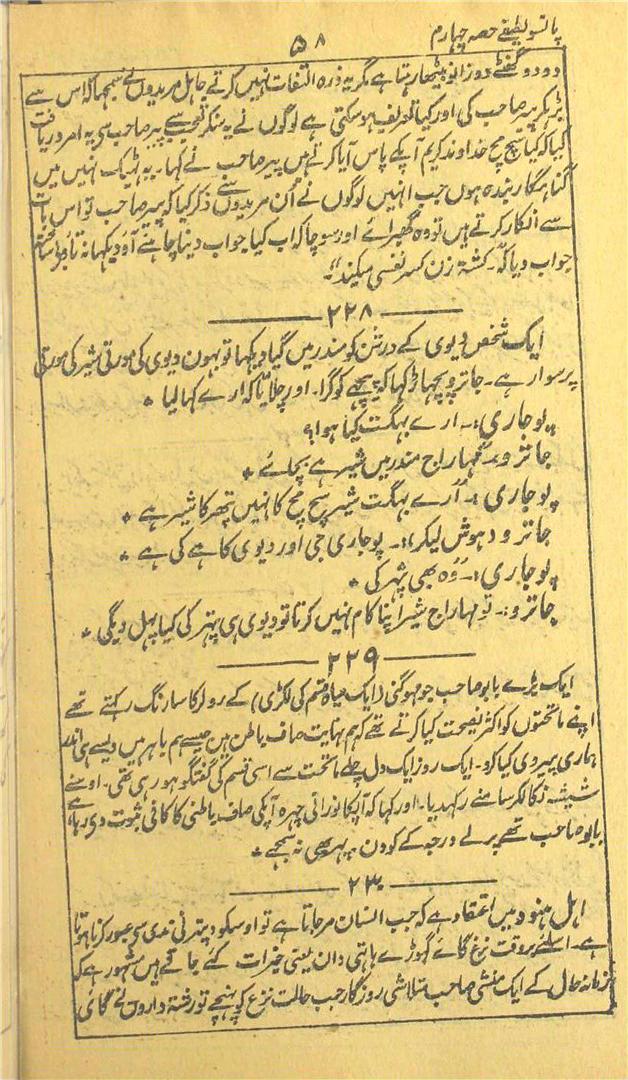 پانسو لطیفے حصہ چہارم
۵۸
دو دو گھنٹے دوزانو بیٹھا رہتا ہے مگر یہ ذرہ التفات نہیں کرتے جاہل مریدوں نے سمجھا کہ اس سے
بڑہکر پیر صاحب کی اور کیا تعریف ہو سکتی ہے لوگوں نے یہ سنکر تعجب سے پیر صاحب سے یہ امر دریافت
کیا کہ کیا سچ مچ خداوند کریم آپکے پاس آیا کرتے ہیں پیر صاحب نے کہا۔ یہ ٹہیک نہیں میں
گناہگار بندہ ہوں جب انہیں لوگوں نے اُن مریدوں سے ذکر کیا کہ پیر صاحب تو اس بات
سے انکار کرتے ہیں تو وہ گھبرائے اور سوچا کہ اب کیا جواب دینا چاہئے آؤ دیکہا نہ تاؤ
جواب دیا کہ۔ کشتۂ زن کسر نفسی میکند"۔
۲۲۸
ایک شخص دیوی کے درشن کو مندر میں گیا دیکہا تو بہون دیوی کی مورتی شیر کی مورتی
پر سوار ہے۔ جاترو پچہاڑ کہا کر پیچہے کو گرا۔ اور چلایا کہ ارے کہا لیا ٭
پوجاری:۔ ارے بہگت کیا ہوا؟
جاترو:۔ مہاراج مندر میں شیر ہے بچائے ٭
پوجاری:۔ ارے بہگت شیر سچ مچ کا نہیں پتھر کا شیر ہے ٭
جاترو (ہوش لیکر):۔ پوجاری جی اور دیوی کاہے کی ہے ٭
پوجاری:۔ وہ بھی پتہر کی ٭
جاترو:۔ تو مہاراج شیر اپنا کام نہیں کرتا تو دیوی ہی پتہر کی کیا پہل دیگی ٭
۲۲۹
ایک بڑے بابو صاحب جو مہوگنی (ایک سیاہ قسم کی لکڑی) کے رولر کا سا رنگ رکہتے تھے
اپنے ماتحتوں کو اکثر نصیحت کیا کرتے تھے کہ ہم نہایت صاف باطن ہیں جیسے ہم باہر ہیں ویسے ہی اندر
ہماری پیروی کیا کرو۔ ایک روز ایک دل چلے ماتحت سے اسی قسم کی گفتگو ہو رہی تھی۔ اوسنے
شیشہ نکالکر سامنے رکہدیا۔ اور کہا کہ آپکا نورانی چہرہ آپکی صاف باطنی کا کافی ثبوت دے رہا ہے
بابو صاحب تھے پرلے درجہ کے کودن۔ پہر بھی نہ سمجہے ٭
۲۳۰
اہل ہنود میں اعتقاد ہے کہ جب انسان مرجاتا ہے تو اوسکو دیترنی ندی سے عبور کرنا ہوتا
ہے۔ اسلئے بروقت نزع گائے گہوڑے ہاتہی دان یعنی خیرات کئے جاتے ہیں مشہور ہے کہ
زمانہ حال کے ایک منشی صاحب متلاشی روزگار جب حالت نزع کو پہنچے تو رشتہ داروں نے گائی